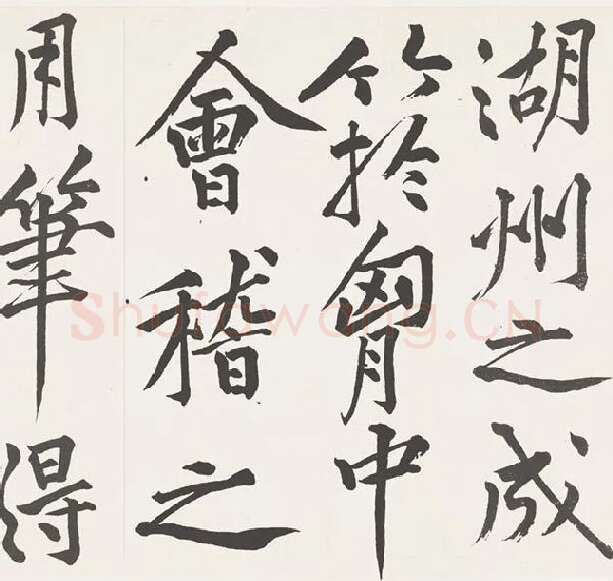 湖州之成
竹於胷中
會稽之
用筆得
Shufawang.CN